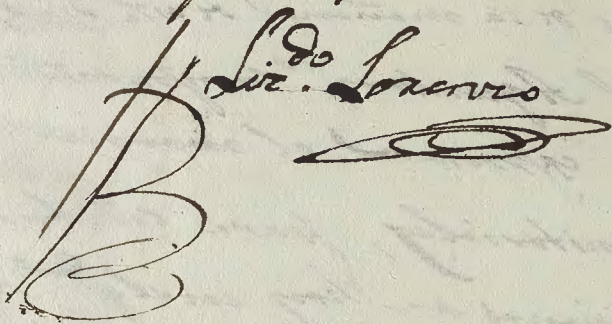 Lic.do Lorenzo
B